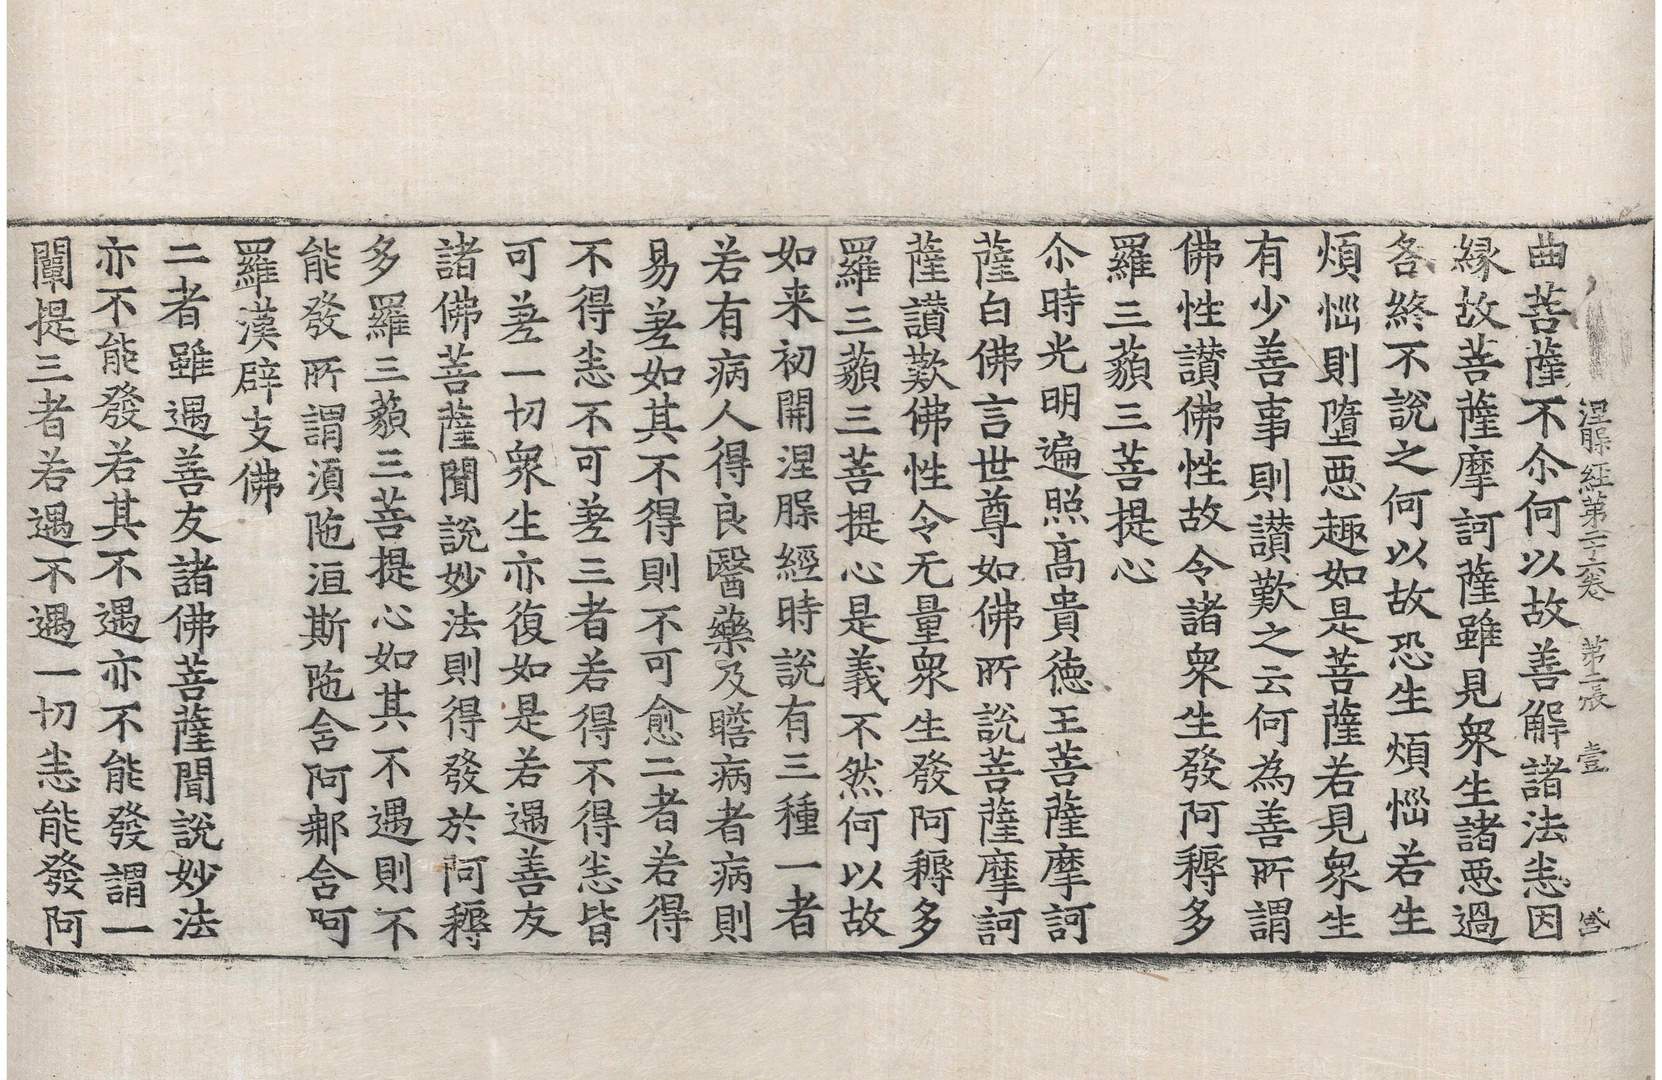 涅槃經第二十六卷　第二張　壹
曲菩薩不尒何以故善解諸法恙因
縁故菩薩摩訶薩雖見衆生諸悪過
各終不說之何以故恐生煩惱若生
煩惱則墮悪趣如是菩薩若見衆生
有少善事則讃歎之云何為善所謂
佛性讃佛性故令諸衆生發阿耨多
羅三藐三菩提心
尒時光明遍照髙貴徳王菩薩摩訶
薩白佛言世尊如佛所說菩薩摩訶
薩讃歎佛性令无量衆生發阿耨多
羅三藐三菩提心是義不然何以故
如来初開涅槃經時說有三種一者
若有病人得良醫藥及瞻病者病則
易差如其不得則不可愈二者若得
不得恙不可差三者若得不得恙皆
可差一切衆生亦復如是若遇善友
諸佛菩薩聞說妙法則得發於阿耨
多羅三藐三菩提心如其不遇則不
能發所謂湏陁洹斯陁含阿那含呵
羅漢辟支佛
二者雖遇善友諸佛菩薩聞說妙法
亦不能發若其不遇亦不能發謂一
闡提三者若遇不遇一切恙能發阿